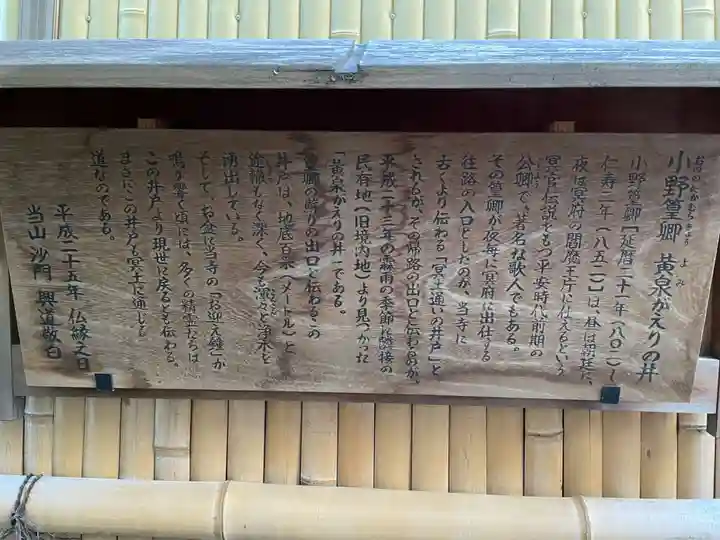 おののたかむらきょう よみ
小野篁卿 黄泉がえりの井
小野篁卿[延暦二十一年(八〇二)〜
仁寿二年(八五二)]は、昼は朝廷に、
夜は冥府の閻魔王庁に仕えるという
冥官伝説をもつ平安時代前期の
公卿で、著名な歌人でもある。
その篁卿が夜毎に冥府へ出仕する
往路の入口としたのが、当寺に
古くより伝わる「冥土通いの井戸」と
されるが、その帰路の出口と伝わるのが、
平成二十三年の霖雨の季節に隣接の
民有地(旧境内地)より見つかった
「黄泉がえりの井」である。
篁卿の蘇りの出口と伝わるこの
井戸は、地底百余「メートル」と
途轍もなく深く、今も滾々と浄水を
湧出している。
そして、お盆に当寺の「お迎え鐘」が
鳴り響く頃には、多くの精霊たちは
この井戸より現世に戻ると伝わる。
まさにこの井戸も冥土に通じる
道なのである。
平成二十五年 仏縁之日
当山 沙門 興道敬白